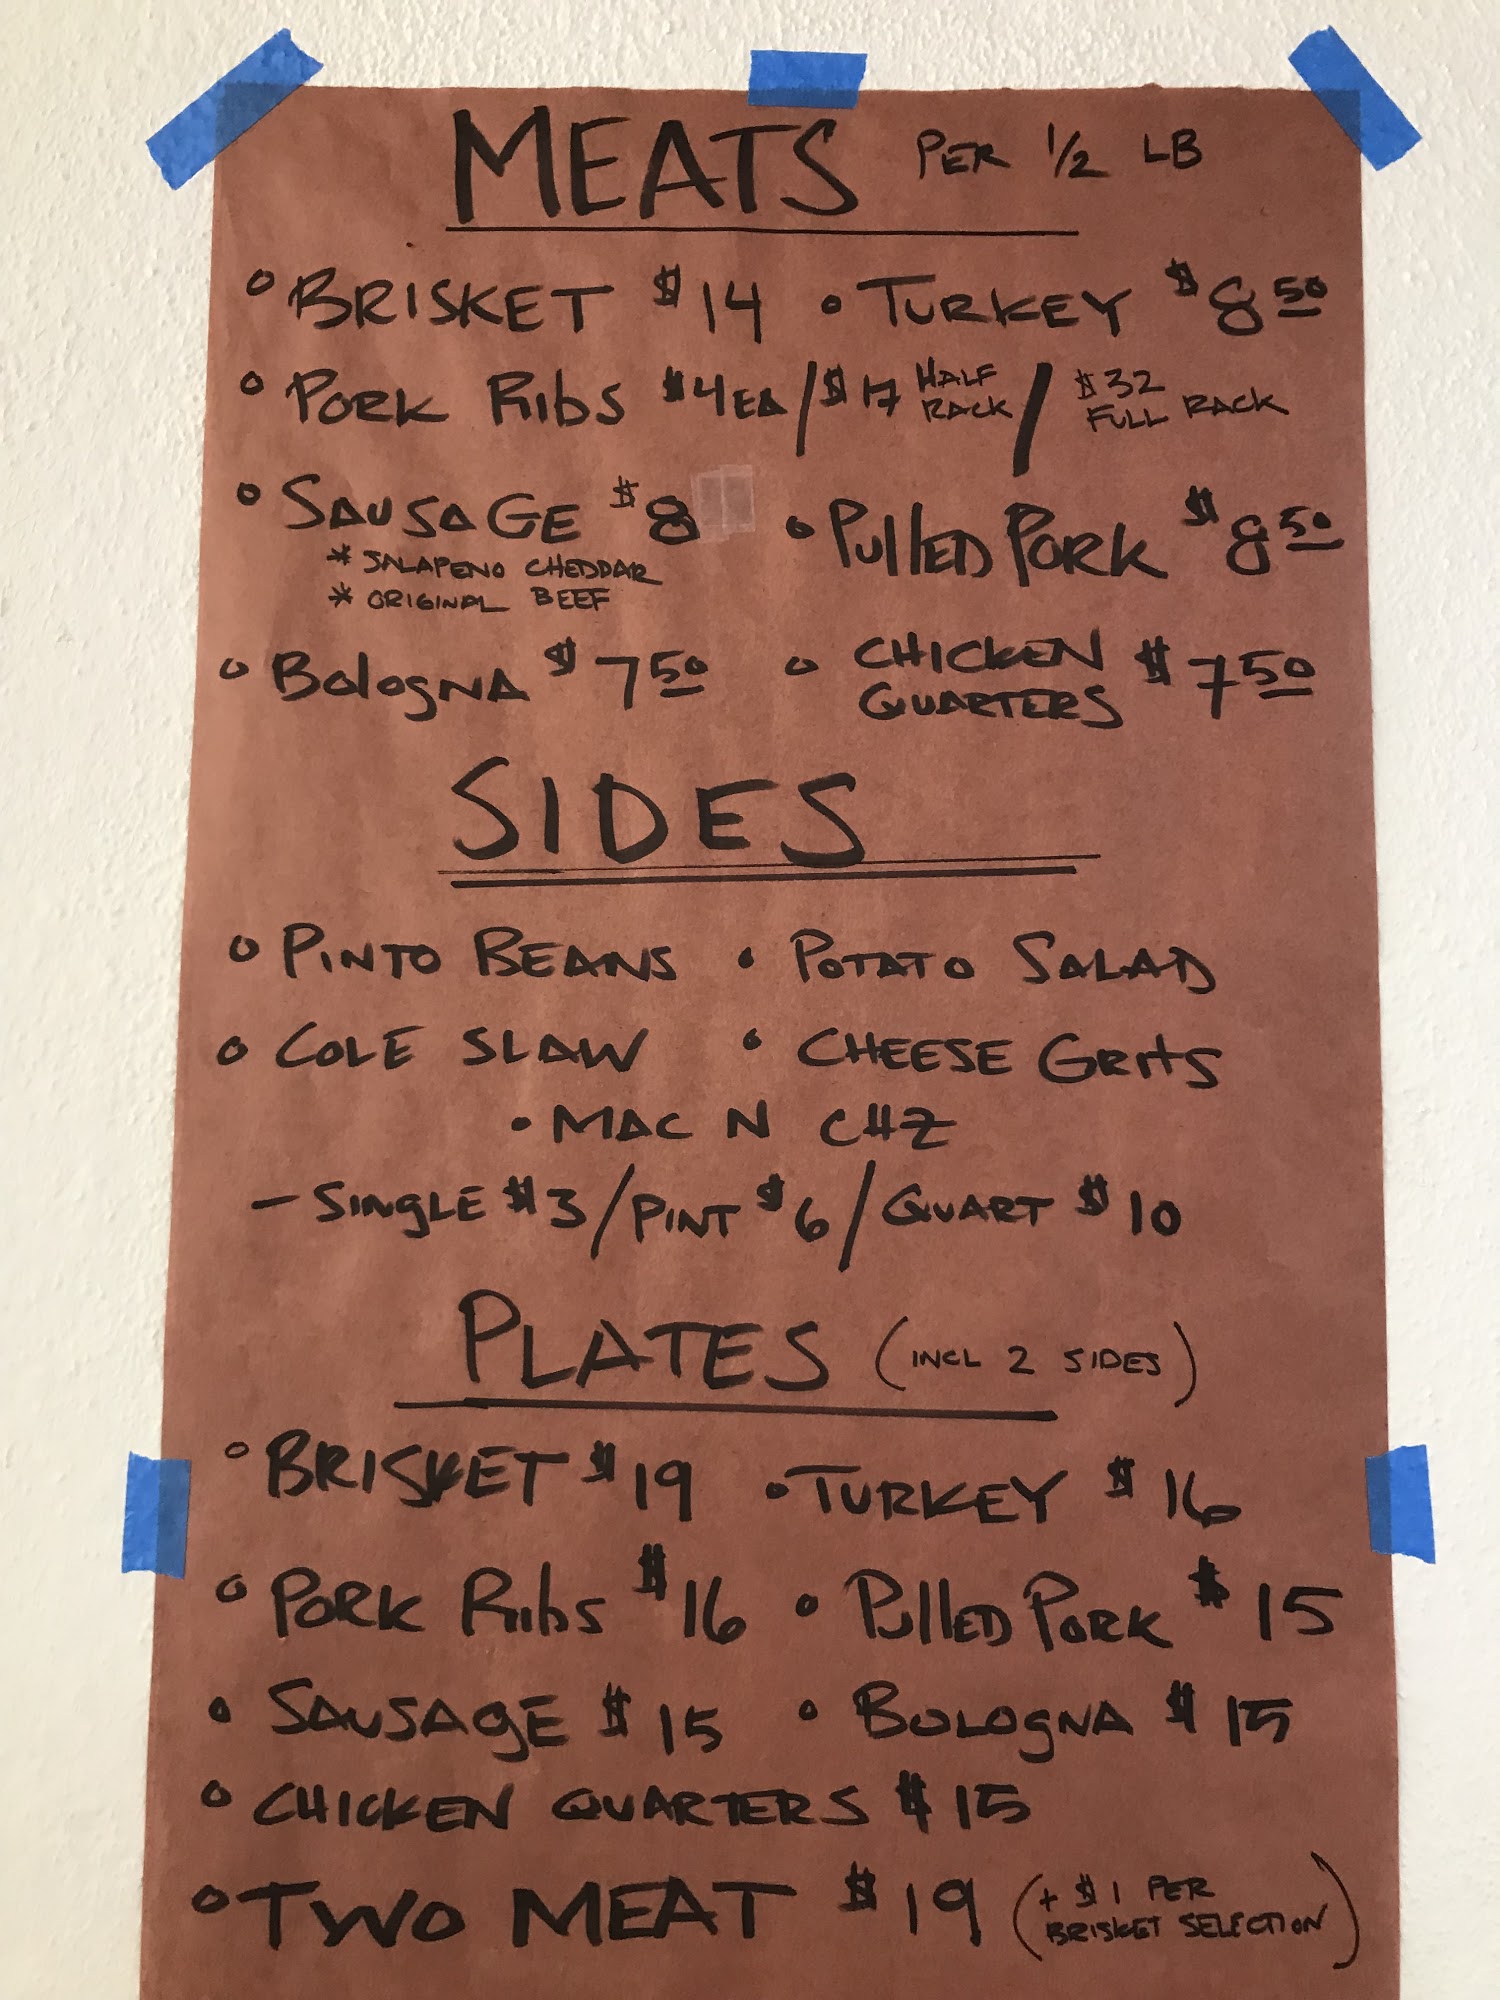 MEATS PER 1/2 LB
° BRISKET $14 ° TURKEY $8 50
° PORK RIBS $4 EA / $17 HALF RACK / $32 FULL RACK
° SAUSAGE $8 ° PULLED PORK $8 50
* JALAPENO CHEDDAR
* ORIGINAL BEEF
° BOLOGNA $7 50 ° CHICKEN QUARTERS $7 50
SIDES
° PINTO BEANS • POTATO SALAD
° COLE SLAW ° CHEESE GRITS
• MAC N CHZ
– SINGLE $3 / PINT $6 / QUART $10
PLATES (INCL 2 SIDES)
° BRISKET $19 • TURKEY $16
° PORK RIBS $16 ° PULLED PORK $15
° SAUSAGE $15 ° BOLOGNA $15
° CHICKEN QUARTERS $15
° TWO MEAT $19 (+ $1 PER BRISKET SELECTION)